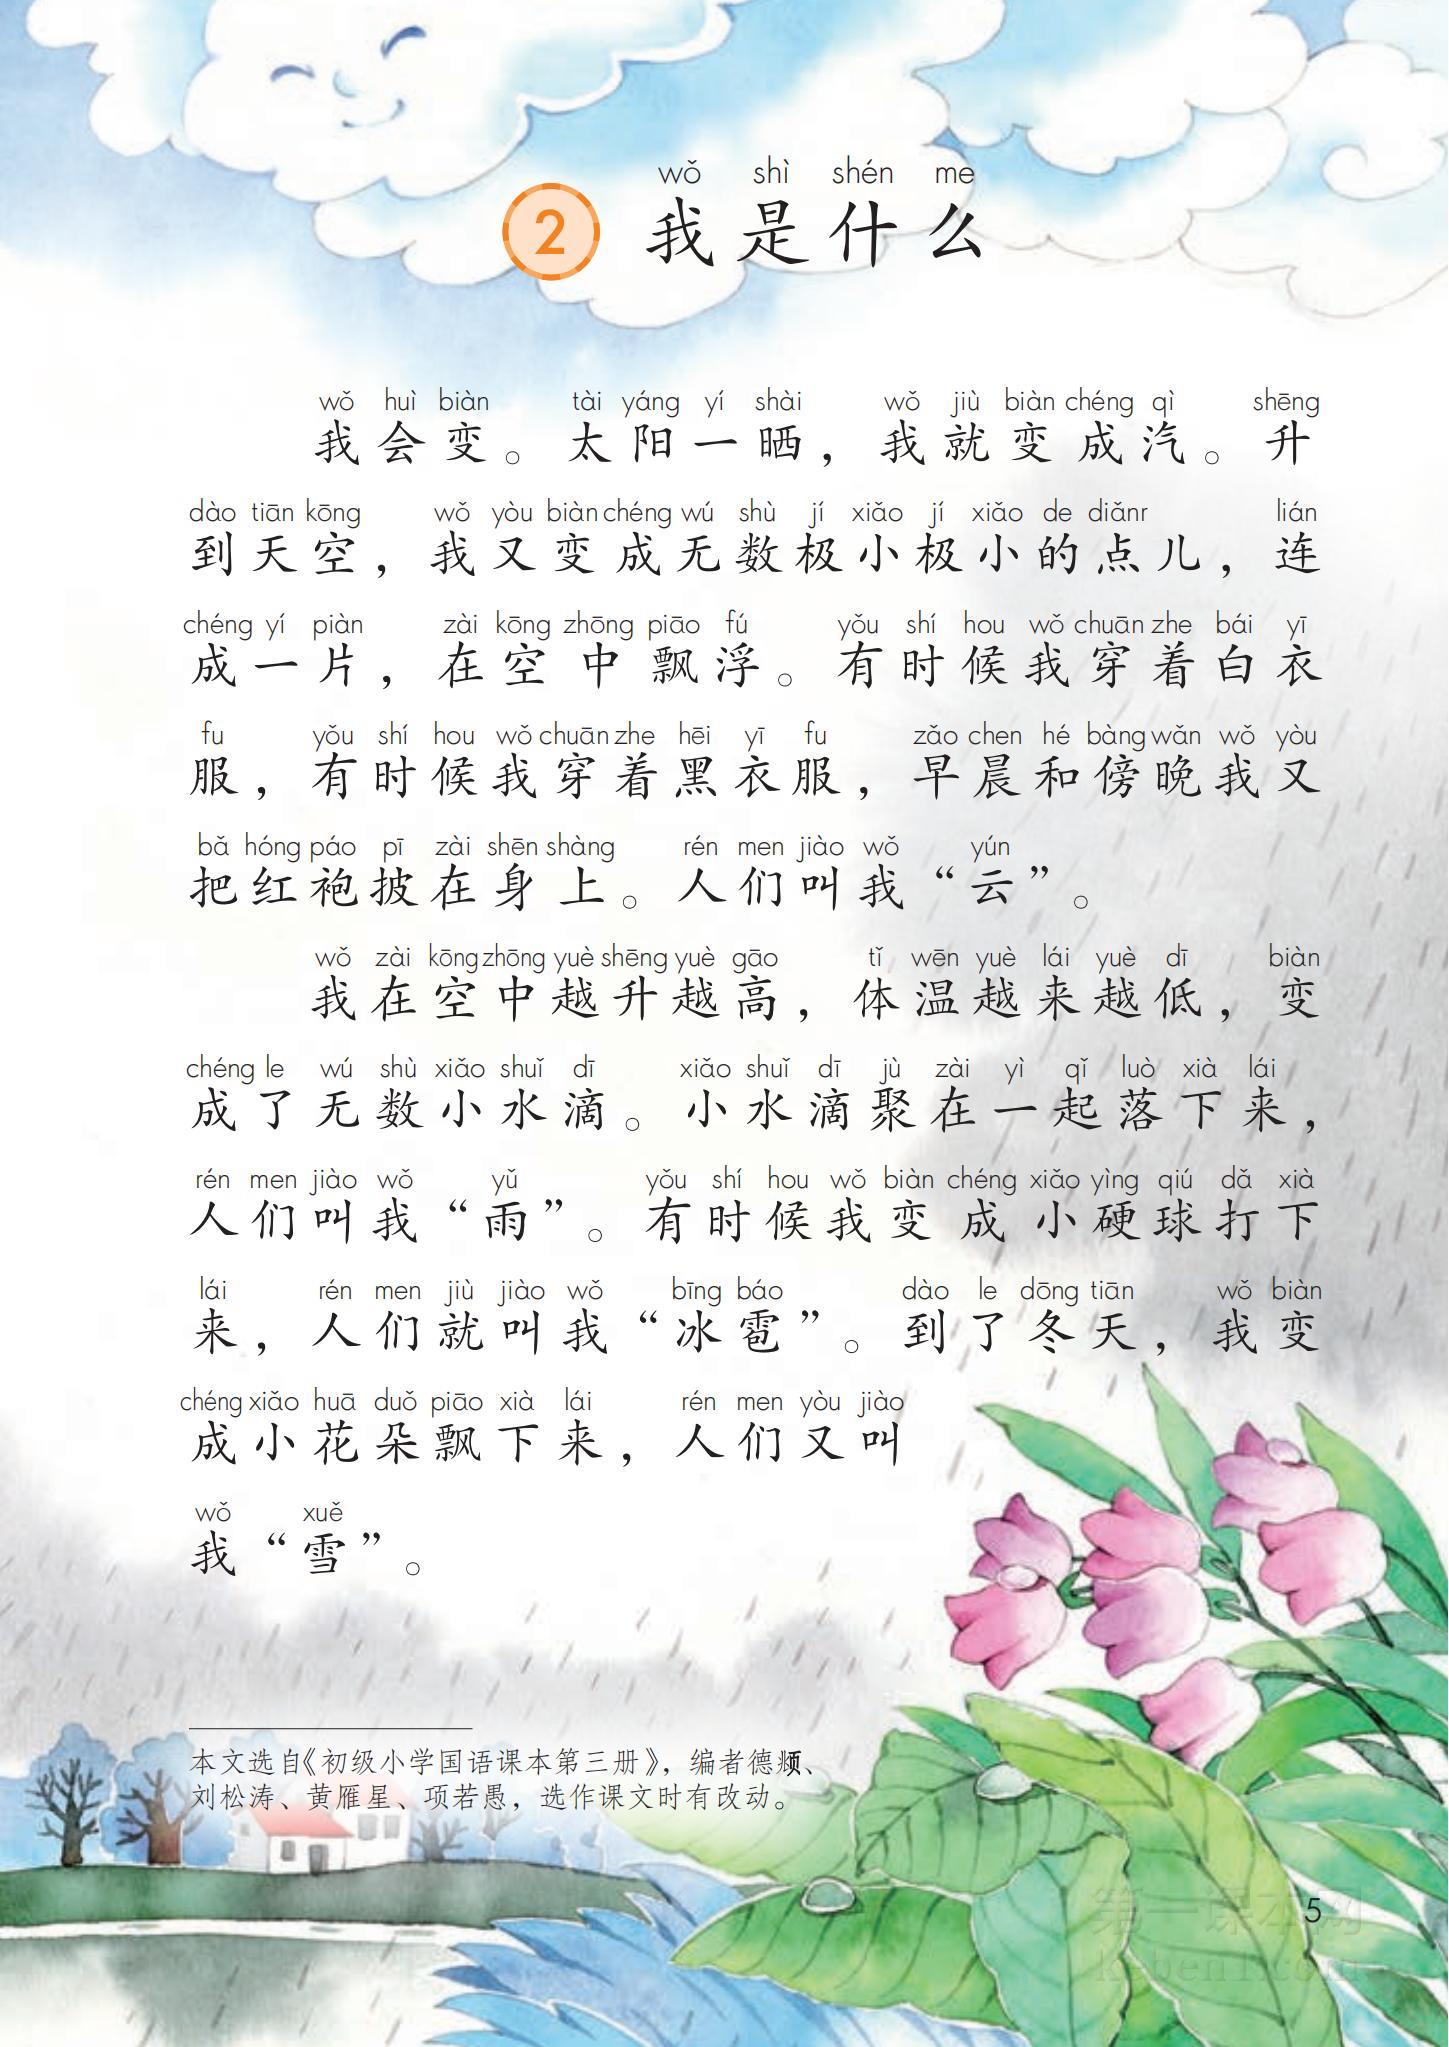 wǒ shì shén me
2 我是什么
wǒ huì biàn tài yáng yí shài wǒ jiù biàn chéng qì shēng
我会变。太阳一晒，我就变成汽。升
dào tiān kōng wǒ yòu biàn chéng wú shù jí xiǎo jí xiǎo de diǎnr lián
到天空，我又变成无数极小极小的点儿，连
chéng yí piàn zài kōng zhōng piāo fú yǒu shí hou wǒ chuān zhe bái yī
成一片，在空中飘浮。有时候我穿着白衣
fu yǒu shí hou wǒ chuān zhe hēi yī fu zǎo chen hé bàng wǎn wǒ yòu
服，有时候我穿着黑衣服，早晨和傍晚我又
bǎ hóng páo pī zài shēn shàng rén men jiào wǒ yún
把红袍披在身上。人们叫我“云”。
wǒ zài kōng zhōng yuè shēng yuè gāo tǐ wēn yuè lái yuè dī biàn
我在空中越升越高，体温越来越低，变
chéng le wú shù xiǎo shuǐ dī xiǎo shuǐ dī jù zài yì qǐ luò xià lái
成了无数小水滴。小水滴聚在一起落下来，
rén men jiào wǒ yǔ yǒu shí hou wǒ biàn chéng xiǎo yìng qiú dǎ xià
人们叫我“雨”。有时候我变成小硬球打下
lái rén men jiù jiào wǒ bīng báo dào le dōng tiān wǒ biàn
来，人们就叫我“冰雹”。到了冬天，我变
chéng xiǎo huā duǒ piāo xià lái rén men yòu jiào
成小花朵飘下来，人们又叫
wǒ xuě
我“雪”。
本文选自《初级小学国语课本第三册》，编者德颎、
刘松涛、黄雁星、项若愚，选作课文时有改动。
5
第一课本网
keben1.com